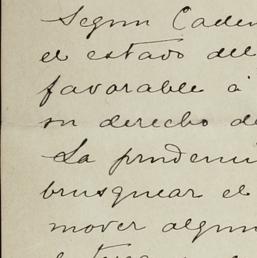 Segun Caden
el estado del
favorable á
su derecho de
La prudenci
brusquear el
mover algun